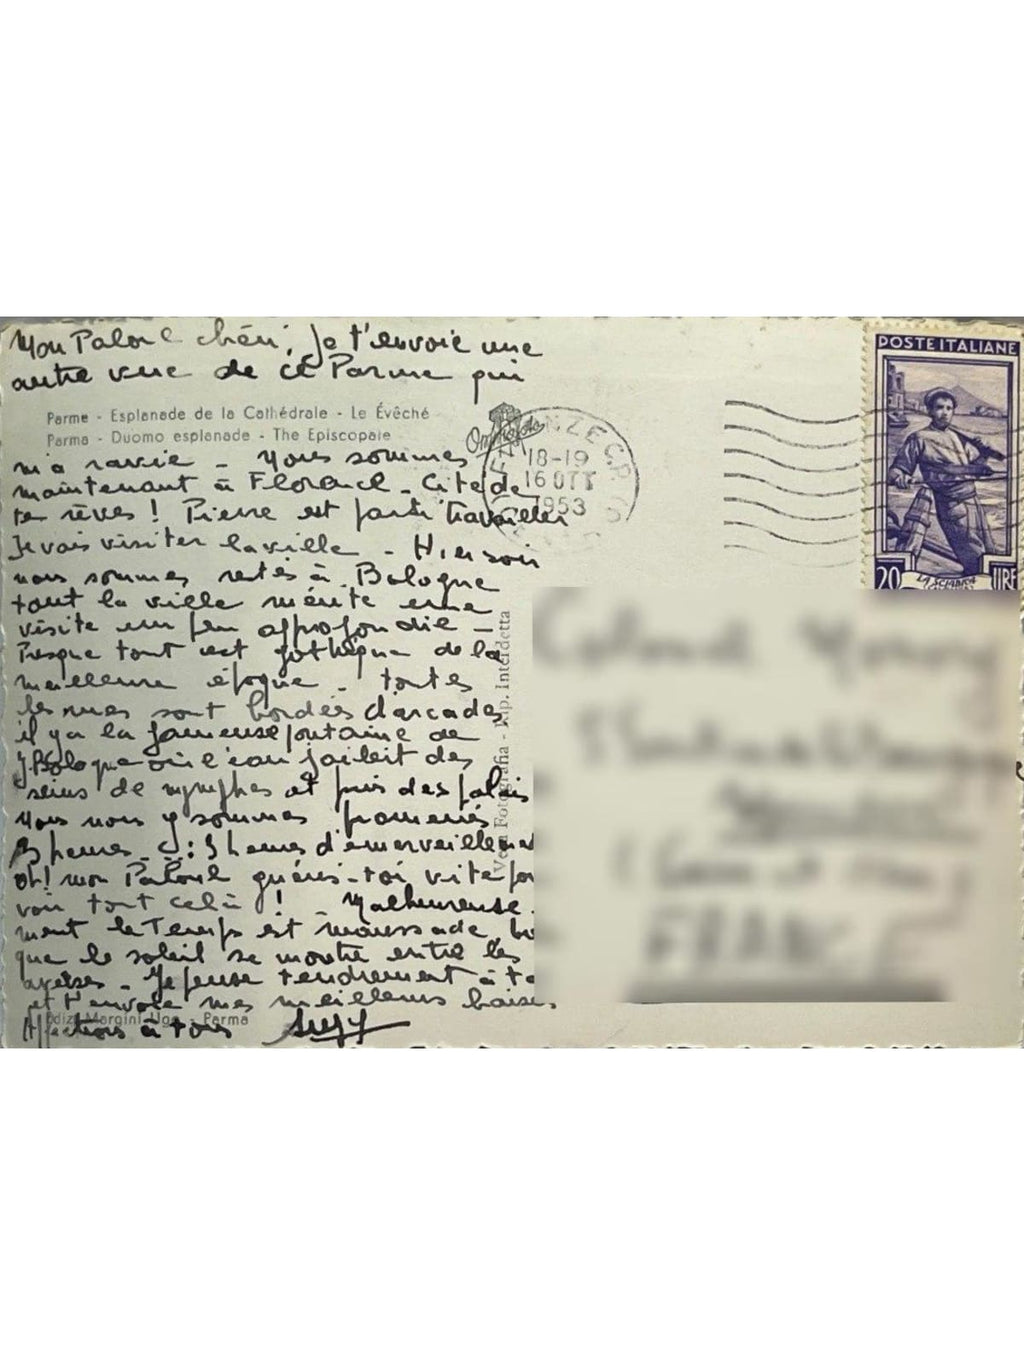 Mon Paloul chéri, Je t'envoie une
autre vue de ce Parme qui
Parme - Esplanade de la Cathédrale - Le Évêché
Parma - Duomo esplanade - The Episcopale
m'a ravie - Nous sommes
maintenant à Florence - Cité de
tes rêves ! Pierre est parti travailler
Je vais visiter la ville - Hier soir
nous sommes restés à Bologne
tout la ville mérite une
visite un peu approfondie -
Presque tout est gothique de la
meilleure époque - toutes
les rues sont bordées d'arcades
il y a la fameuse fontaine de
J. Bologne où l'eau jaillit des
seins de nymphes et puis des palais
Nous nous y sommes promenés
3 heures : 3 heures d'émerveillement
oh! mon Paloul guéris-toi vite pour
voir tout celà ! Malheureuse
ment le Temps est maussade, bi
que le soleil se montre entre les
averses - Je pense tendrement à to
et t'envoie mes meilleurs baisers
Affections à tous Suzy
Ediz. Margini Ugo - Parma
Vera Fotografia - Rip. Interdetta
FIRENZE C.P.
18-19
16 OTT
1953
POSTE ITALIANE
20 LIRE
LA SCIABICA
FRANCE